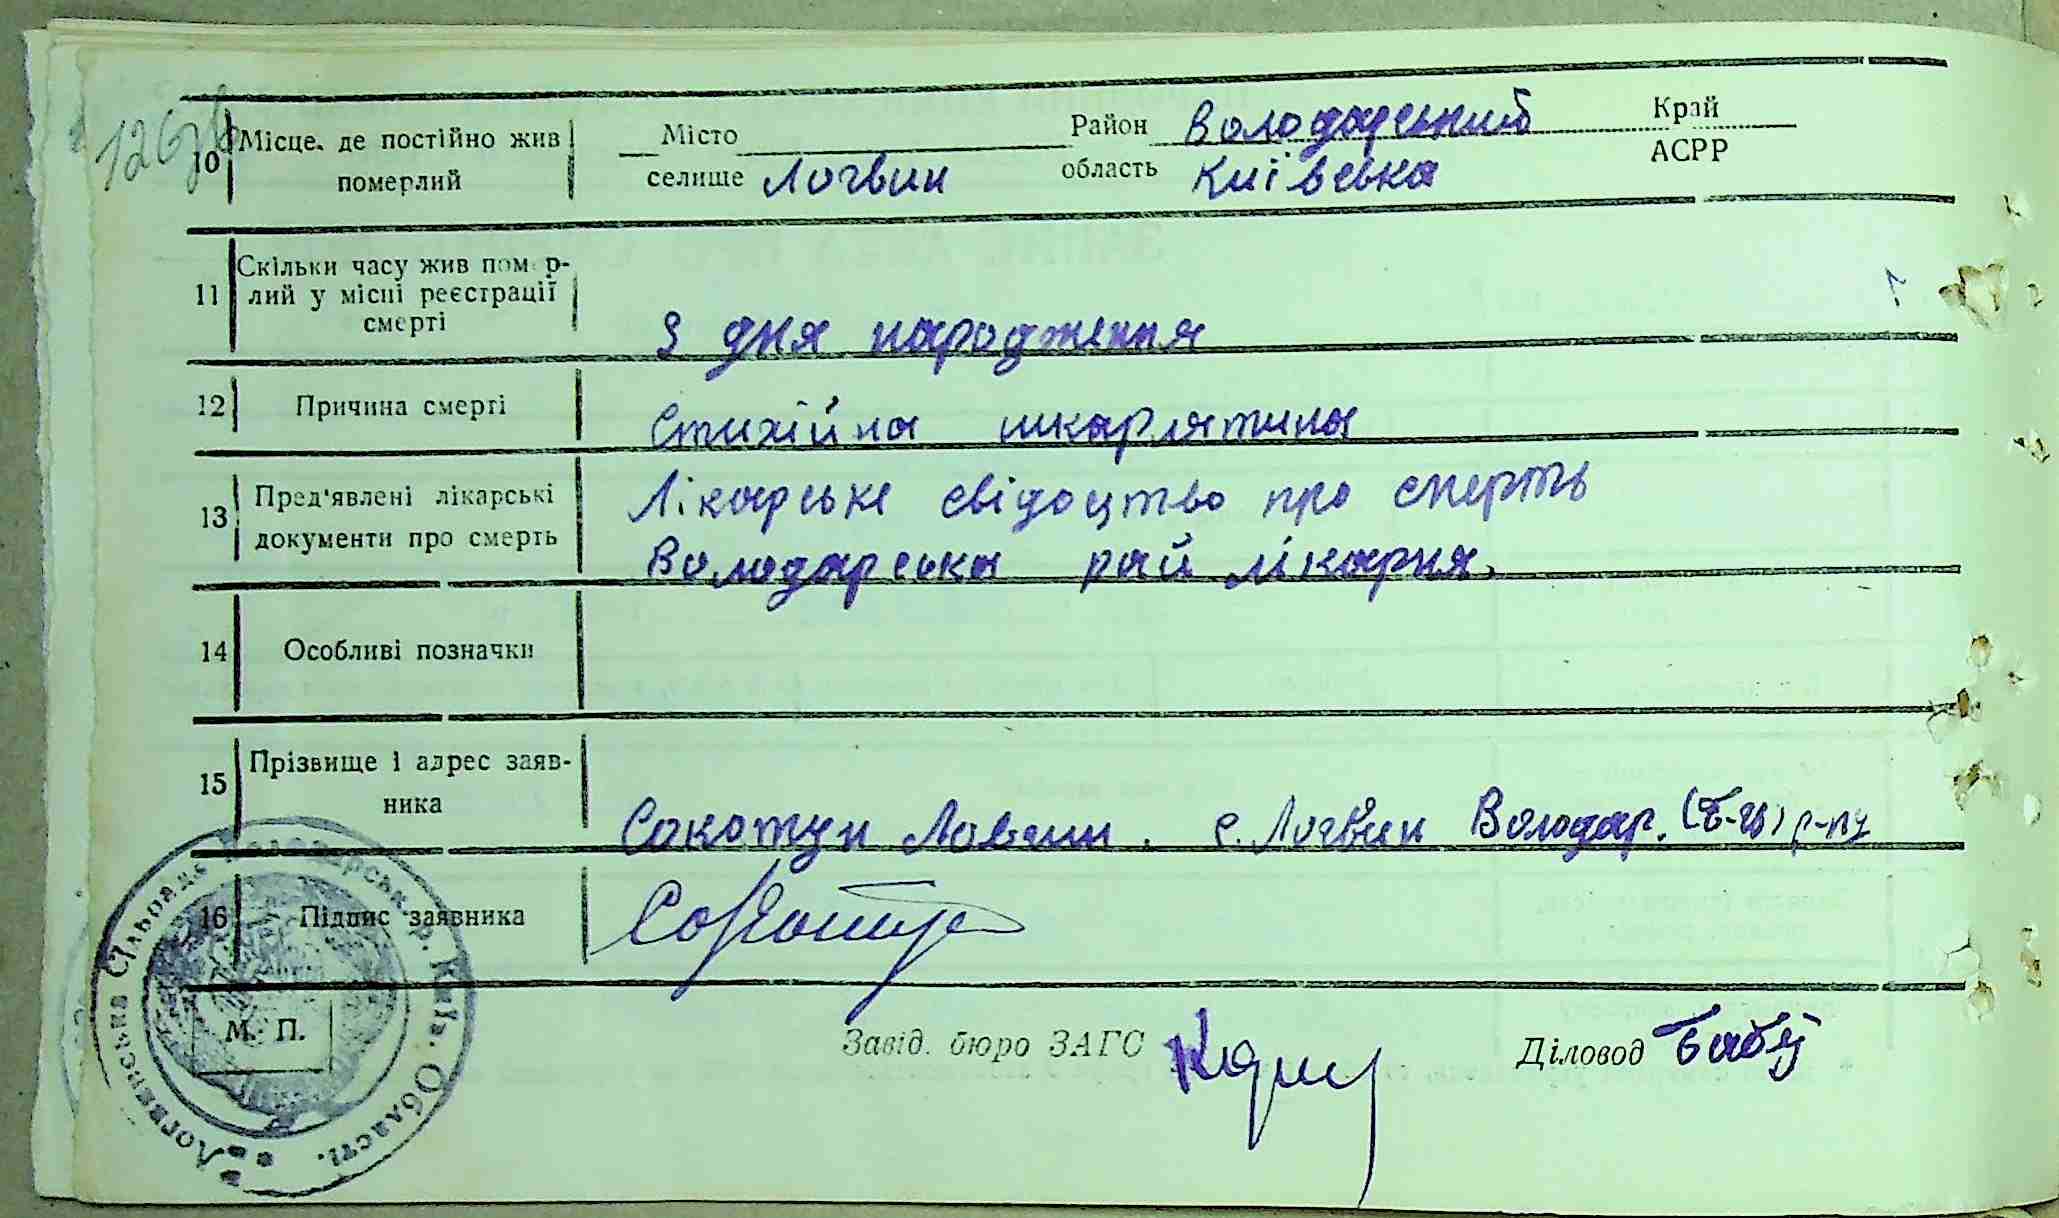 126
10 Місце, де постійно жив померлий
Місто
селище Логвин
Район Володарський
область Київська
Край
АСРР
11 Скільки часу жив померлий у місці реєстрації смерті
З дня народження
12 Причина смерті
Стихійна шкарлятина
13 Пред'явлені лікарські документи про смерть
Лікарське свідоцтво про смерть
Володарська рай лікарня.
14 Особливі позначки
15 Прізвище і адрес заявника
Сокотун с. Логвин Володар. (Б-Ц) р-ну
16 Підпис заявника
М. П.
Логвенська Сільрада Володарськ. р. Київ. Області.
Завід. бюро ЗАГС
Діловод